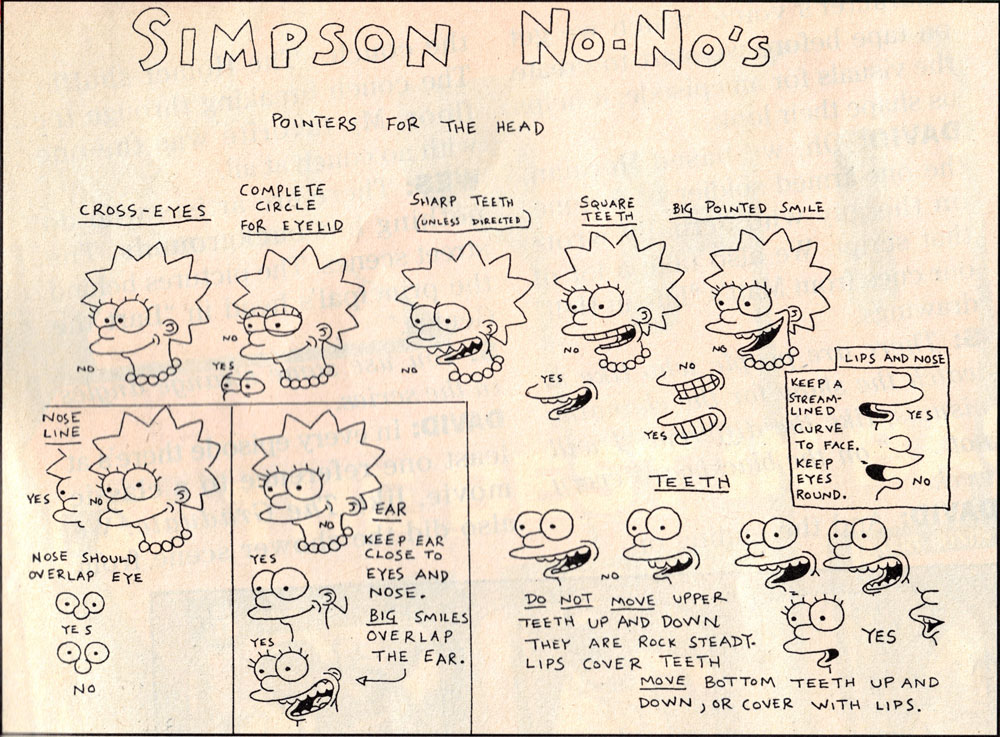 SIMPSON NO-NO'S
POINTERS FOR THE HEAD
CROSS-EYES
NO
COMPLETE
CIRCLE
FOR EYELID
NO
YES
SHARP TEETH
(UNLESS DIRECTED)
NO
SQUARE
TEETH
NO
YES
NO
YES
BIG POINTED SMILE
NO
LIPS AND NOSE
KEEP A
STREAM-
LINED
CURVE
TO FACE.
KEEP
EYES
ROUND.
YES
NO
NOSE
LINE
YES
NO
NOSE SHOULD
OVERLAP EYE
YES
NO
EAR
NO
KEEP EAR
CLOSE TO
EYES AND
NOSE.
BIG SMILES
OVERLAP
THE EAR.
YES
YES
TEETH
NO
DO NOT MOVE UPPER
TEETH UP AND DOWN
THEY ARE ROCK STEADY.
LIPS COVER TEETH
YES
MOVE BOTTOM TEETH UP AND
DOWN, OR COVER WITH LIPS.